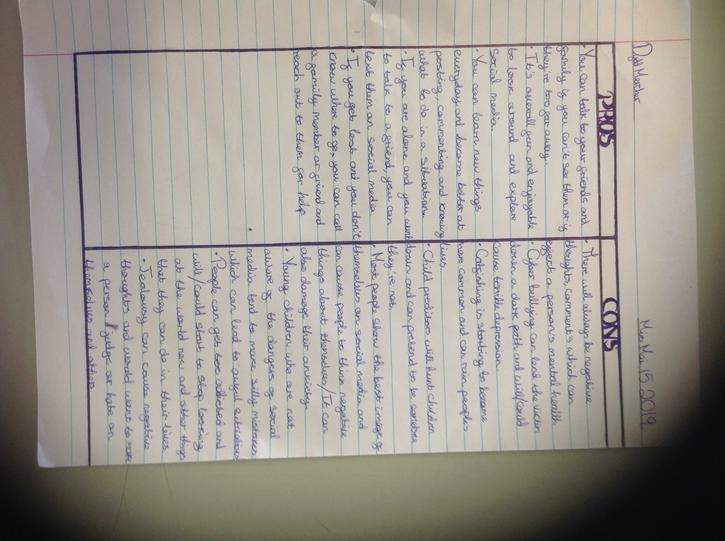 Mon Mar 15 2019
PROS
• You can talk to your friends and
family if you can't see them or if
they're too far away.
• It's overall fun and enjoyable
to look around and explore
social media.
• You can learn new things
everyday and become better at
posting, commenting and knowing
what to do in a situation.
• If you are alone and you want
to talk to a friend, you can
text them on social media
• If you get lost and you don't
know where to go, you can call
a family member or friend and
reach out to them for help
CONS
• There will always be negative
thoughts, comments which can
affect a person's mental health
• Cyber bullying can lead the victim
down a dark path and will/could
cause to depression.
• Catfishing is starting to become
more common and can ruin people's
lives.
• Child preditors will hunt children
down and can pretend to be someone
they're not.
• Most people show the best image of
themselves on social media and
can cause people to think negative
things about themselves/It can
also damage their anxiety
• Young children who are not
aware of the dangers of social
media tend to make silly mistakes
which can lead to awful situations
• People can get too addicted and
will/could start to stop looking
at the world now and other things
that they can do in their lives
• Jealousy can cause negative
thoughts and would want to
a person judge or hate on
themselves and others